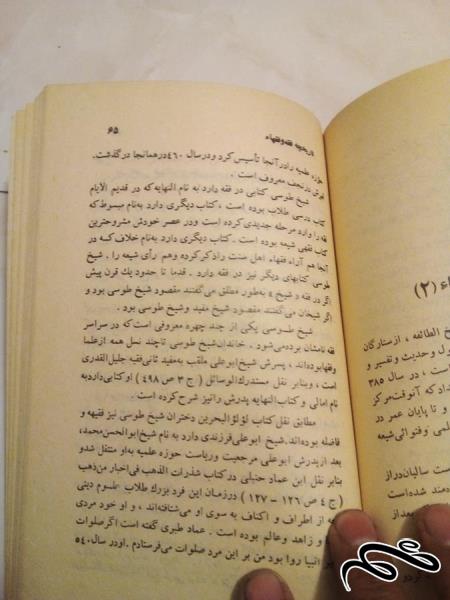 تاریخچه فقه و فقهاء ۶۵
حوزه علمیه را در آنجا تأسیس کرد و در سال ۴۶۰ در همانجا درگذشت.
قبرش در نجف معروف است .
شیخ طوسی کتابی در فقه دارد به نام النهایه که در قدیم الأیام
کتاب درسی طلاب بوده است . کتاب دیگری دارد به نام مبسوط که
فقه را وارد مرحله جدیدی کرده است ودر عصر خودش مشروحترین
کتاب فقهی شیعه بوده است . کتاب دیگری دارد به‌نام خلاف که در
آنجا هم آراء فقهاء اهل سنت را ذکر کرده و هم رأی شیعه را . شیخ
طوسی کتابهای دیگر نیز در فقه دارد . قدما تا حدود یك قرن پیش
اگر در فقه « شیخ » به‌طور مطلق می‌گفتند مقصود شیخ طوسی بود و
اگر شیخان می‌گفتند مقصود شیخ مفید وشیخ طوسی بود .
شیخ طوسی یکی از چند چهره معروفی است که در سراسر
فقه نامشان بوده می‌شود . خاندان شیخ طوسی تا چند نسل همه از علما
وفقها بوده‌اند ، پسرش شیخ ابو علی ملقب به مفید ثانی فقیه جلیل القدری
است ، و بنابر نقل مستدرك الوسائل ( ج ۳ ص ۴۹۸ ) او کتابی دارد به
نام امالی و کتاب النهایه پدرش را نیز شرح کرده است .
مطابق نقل کتاب لؤلؤ البحرین دختران شیخ طوسی نیز فقیهه و
فاضله بوده‌اند . شیخ ابو علی فرزندی دارد به نام شیخ ابوالحسن محمد،
بعد از پدرش ابو علی مرجعیت وریاست حوزه علمیه به او منتقل شد و
بنابر نقل ابن عماد حنبلی در کتاب شذرات الذهب فی اخبار من ذهب
( ج ۴ ص ۱۲۶ – ۱۲۷ ) در زمان این فرد بزرك طلاب علوم دینی
از اطراف و اکناف به سوی او می‌شتافته‌اند ، و او خود مردی
و زاهد و عالم بوده است . عماد طبری گفته است اگر صلوات
بر انبیا روا بود من بر این مرد صلوات می‌فرستادم . او در سال ۵۴۰
اء (۲)
خ الطائفه ، از ستارگان
ول و حدیث و تفسیر و
ت ، در سال ۳۸۵
داد که آنوقت مرکز
و تا پایان عمر در
لمی وفتوائی شیعه
ست سالیان دراز
دمند شده است
بعد از